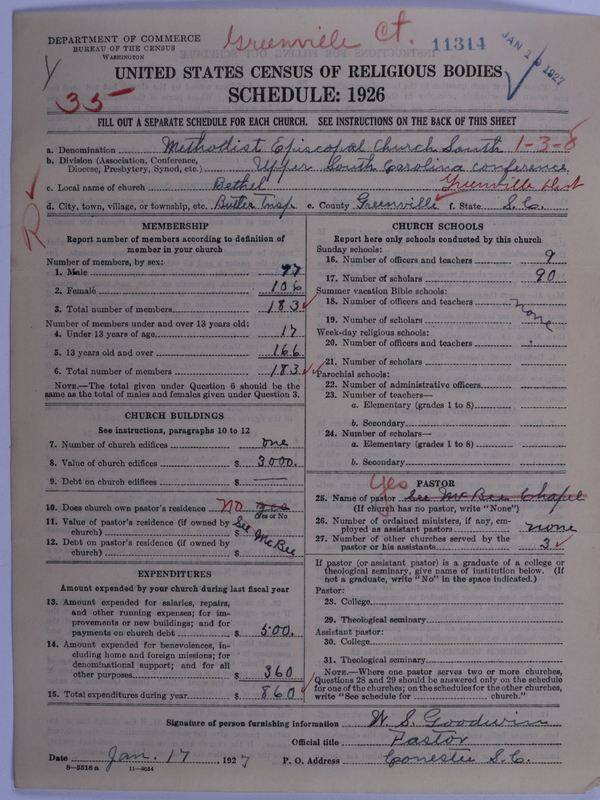 DEPARTMENT OF COMMERCE
BUREAU OF THE CENSUS
WASHINGTON
Greenville Ct.
11314
JAN 1 1927
35
UNITED STATES CENSUS OF RELIGIOUS BODIES
SCHEDULE: 1926
FILL OUT A SEPARATE SCHEDULE FOR EACH CHURCH. SEE INSTRUCTIONS ON THE BACK OF THIS SHEET
a. Denomination Methodist Episcopal Church South 1-3-8
b. Division (Association, Conference, Diocese, Presbytery, Synod, etc.) Upper South Carolina Conference
c. Local name of church Bethel Greenville Dist
d. City, town, village, or township, etc. Butler Twsp e. County Greenville f. State S.C.
R
MEMBERSHIP
Report number of members according to definition of
member in your church
Number of members, by sex:
1. Male 77
2. Female 106
3. Total number of members 183
Number of members under and over 13 years old:
4. Under 13 years of age 17
5. 13 years old and over 166
6. Total number of members 183
NOTE.—The total given under Question 6 should be the
same as the total of males and females given under Question 3.
CHURCH BUILDINGS
See instructions, paragraphs 10 to 12
7. Number of church edifices one
8. Value of church edifices $ 3000.
9. Debt on church edifices $ —
10. Does church own pastor's residence No yes
(Yes or No)
11. Value of pastor's residence (if owned by
church) $ See
12. Debt on pastor's residence (if owned by
church) $ McBee
EXPENDITURES
Amount expended by your church during last fiscal year
13. Amount expended for salaries, repairs,
and other running expenses; for im-
provements or new buildings; and for
payments on church debt $ 500.
14. Amount expended for benevolences, in-
cluding home and foreign missions; for
denominational support; and for all
other purposes $ 360
15. Total expenditures during year $ 860
CHURCH SCHOOLS
Report here only schools conducted by this church
Sunday schools:
16. Number of officers and teachers 9
17. Number of scholars 90
Summer vacation Bible schools:
18. Number of officers and teachers none
19. Number of scholars
Week-day religious schools:
20. Number of officers and teachers
21. Number of scholars
Parochial schools:
22. Number of administrative officers
23. Number of teachers—
a. Elementary (grades 1 to 8)
b. Secondary
24. Number of scholars—
a. Elementary (grades 1 to 8)
b. Secondary
Yes PASTOR
25. Name of pastor See McBee Chapel
(If church has no pastor, write "None")
26. Number of ordained ministers, if any, em-
ployed as assistant pastors none
27. Number of other churches served by the
pastor or his assistants 3
If pastor (or assistant pastor) is a graduate of a college or
theological seminary, give name of institution below. (If
not a graduate, write "No" in the space indicated.)
Pastor:
28. College
29. Theological seminary
Assistant pastor:
30. College
31. Theological seminary
NOTE.—Where one pastor serves two or more churches,
Questions 28 and 29 should be answered only on the schedule
for one of the churches; on the schedules for the other churches,
write "See schedule for church."
Signature of person furnishing information W. S. Goodwin
Official title Pastor
Date Jan. 17, 1927 P. O. Address Conestee S.C.
8—5518 a 11—9054